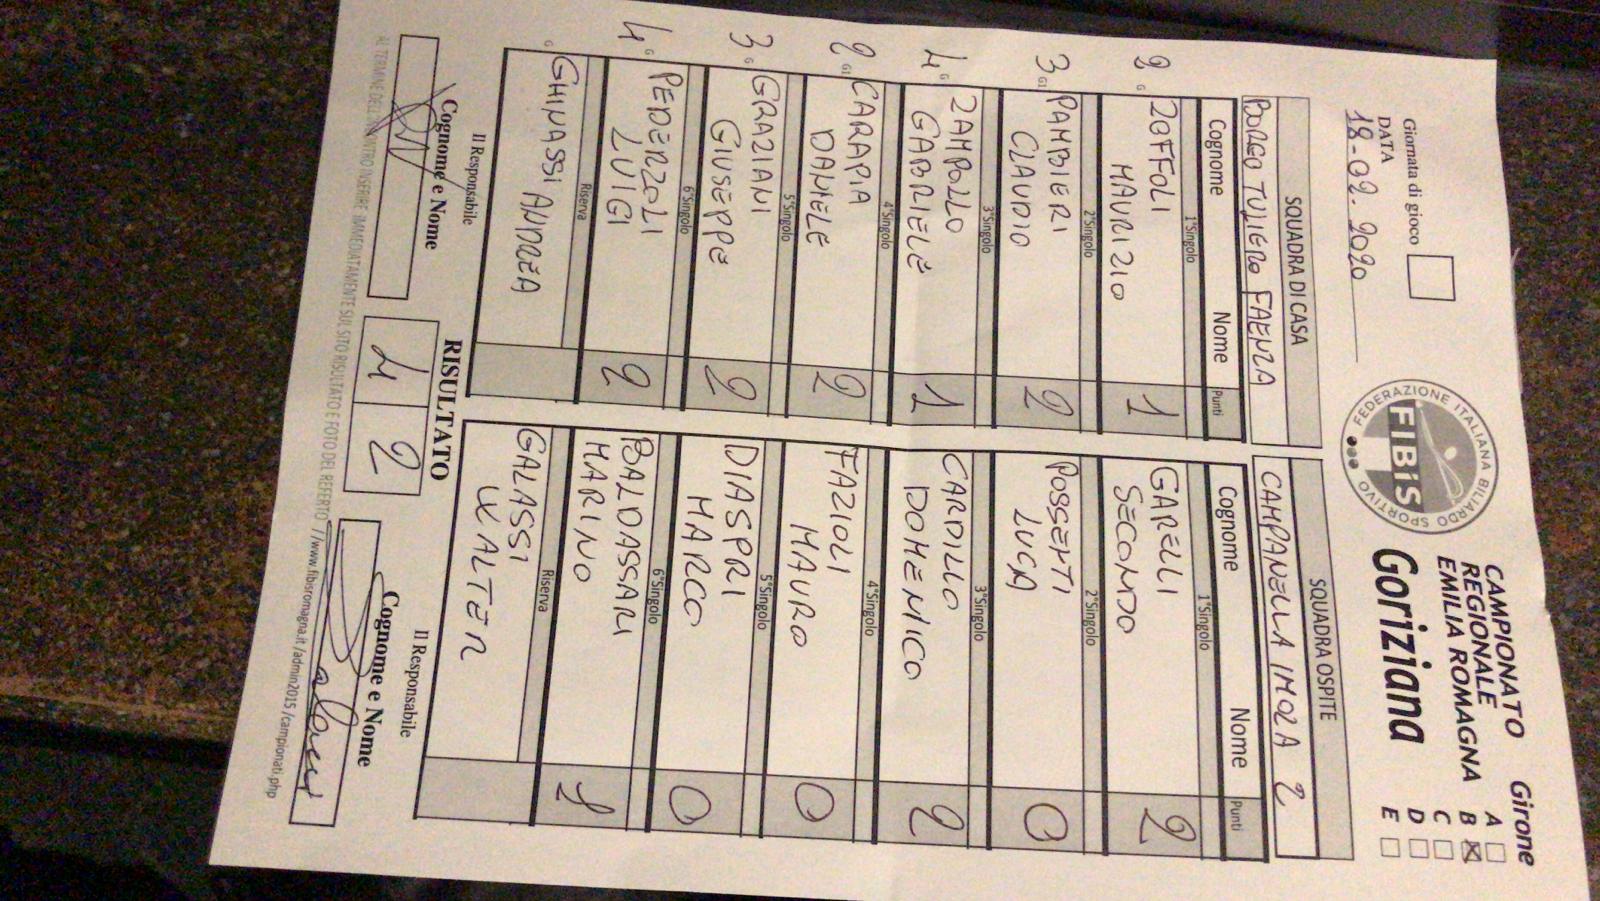 Giornata di gioco
DATA
18-02-2020
FEDERAZIONE ITALIANA BILIARDO SPORTIVO
FIBiS
CAMPIONATO
REGIONALE
EMILIA ROMAGNA
Goriziana
Girone
A
B
C
D
E
SQUADRA DI CASA
BORGO TULIERO FAENZA
Cognome Nome Punti
1°Singolo
2 G ZOFFOLI MAURIZIO 1
2°Singolo
3 G1 PAMBIERI CLAUDIO 2
3°Singolo
4 G ZAMPOLLO GABRIELE 1
4°Singolo
2 G1 CARAPIA DANIELE 2
5°Singolo
3 G GRAZIANI GIUSEPPE 2
6°Singolo
4 G PEDERZOLI LUIGI 2
Riserva
G GHINASSI ANDREA
SQUADRA OSPITE
CAMPANELLA IMOLA 2
Cognome Nome Punti
1°Singolo
GARELLI SECONDO 2
2°Singolo
POSSENTI LUCA 0
3°Singolo
CARDILLO DOMENICO 2
4°Singolo
FAZIOLI MAURO 0
5°Singolo
DIASPRI MARCO 0
6°Singolo
BALDASSARI MARINO
Riserva
GALASSI WALTER
Il Responsabile
Cognome e Nome
RISULTATO
4 2
Il Responsabile
Cognome e Nome
AL TERMINE DELL'INCONTRO INSERIRE IMMEDIATAMENTE SUL SITO RISULTATO E FOTO DEL REFERTO //www.fibisromagna.it/admin2015/campionati.php